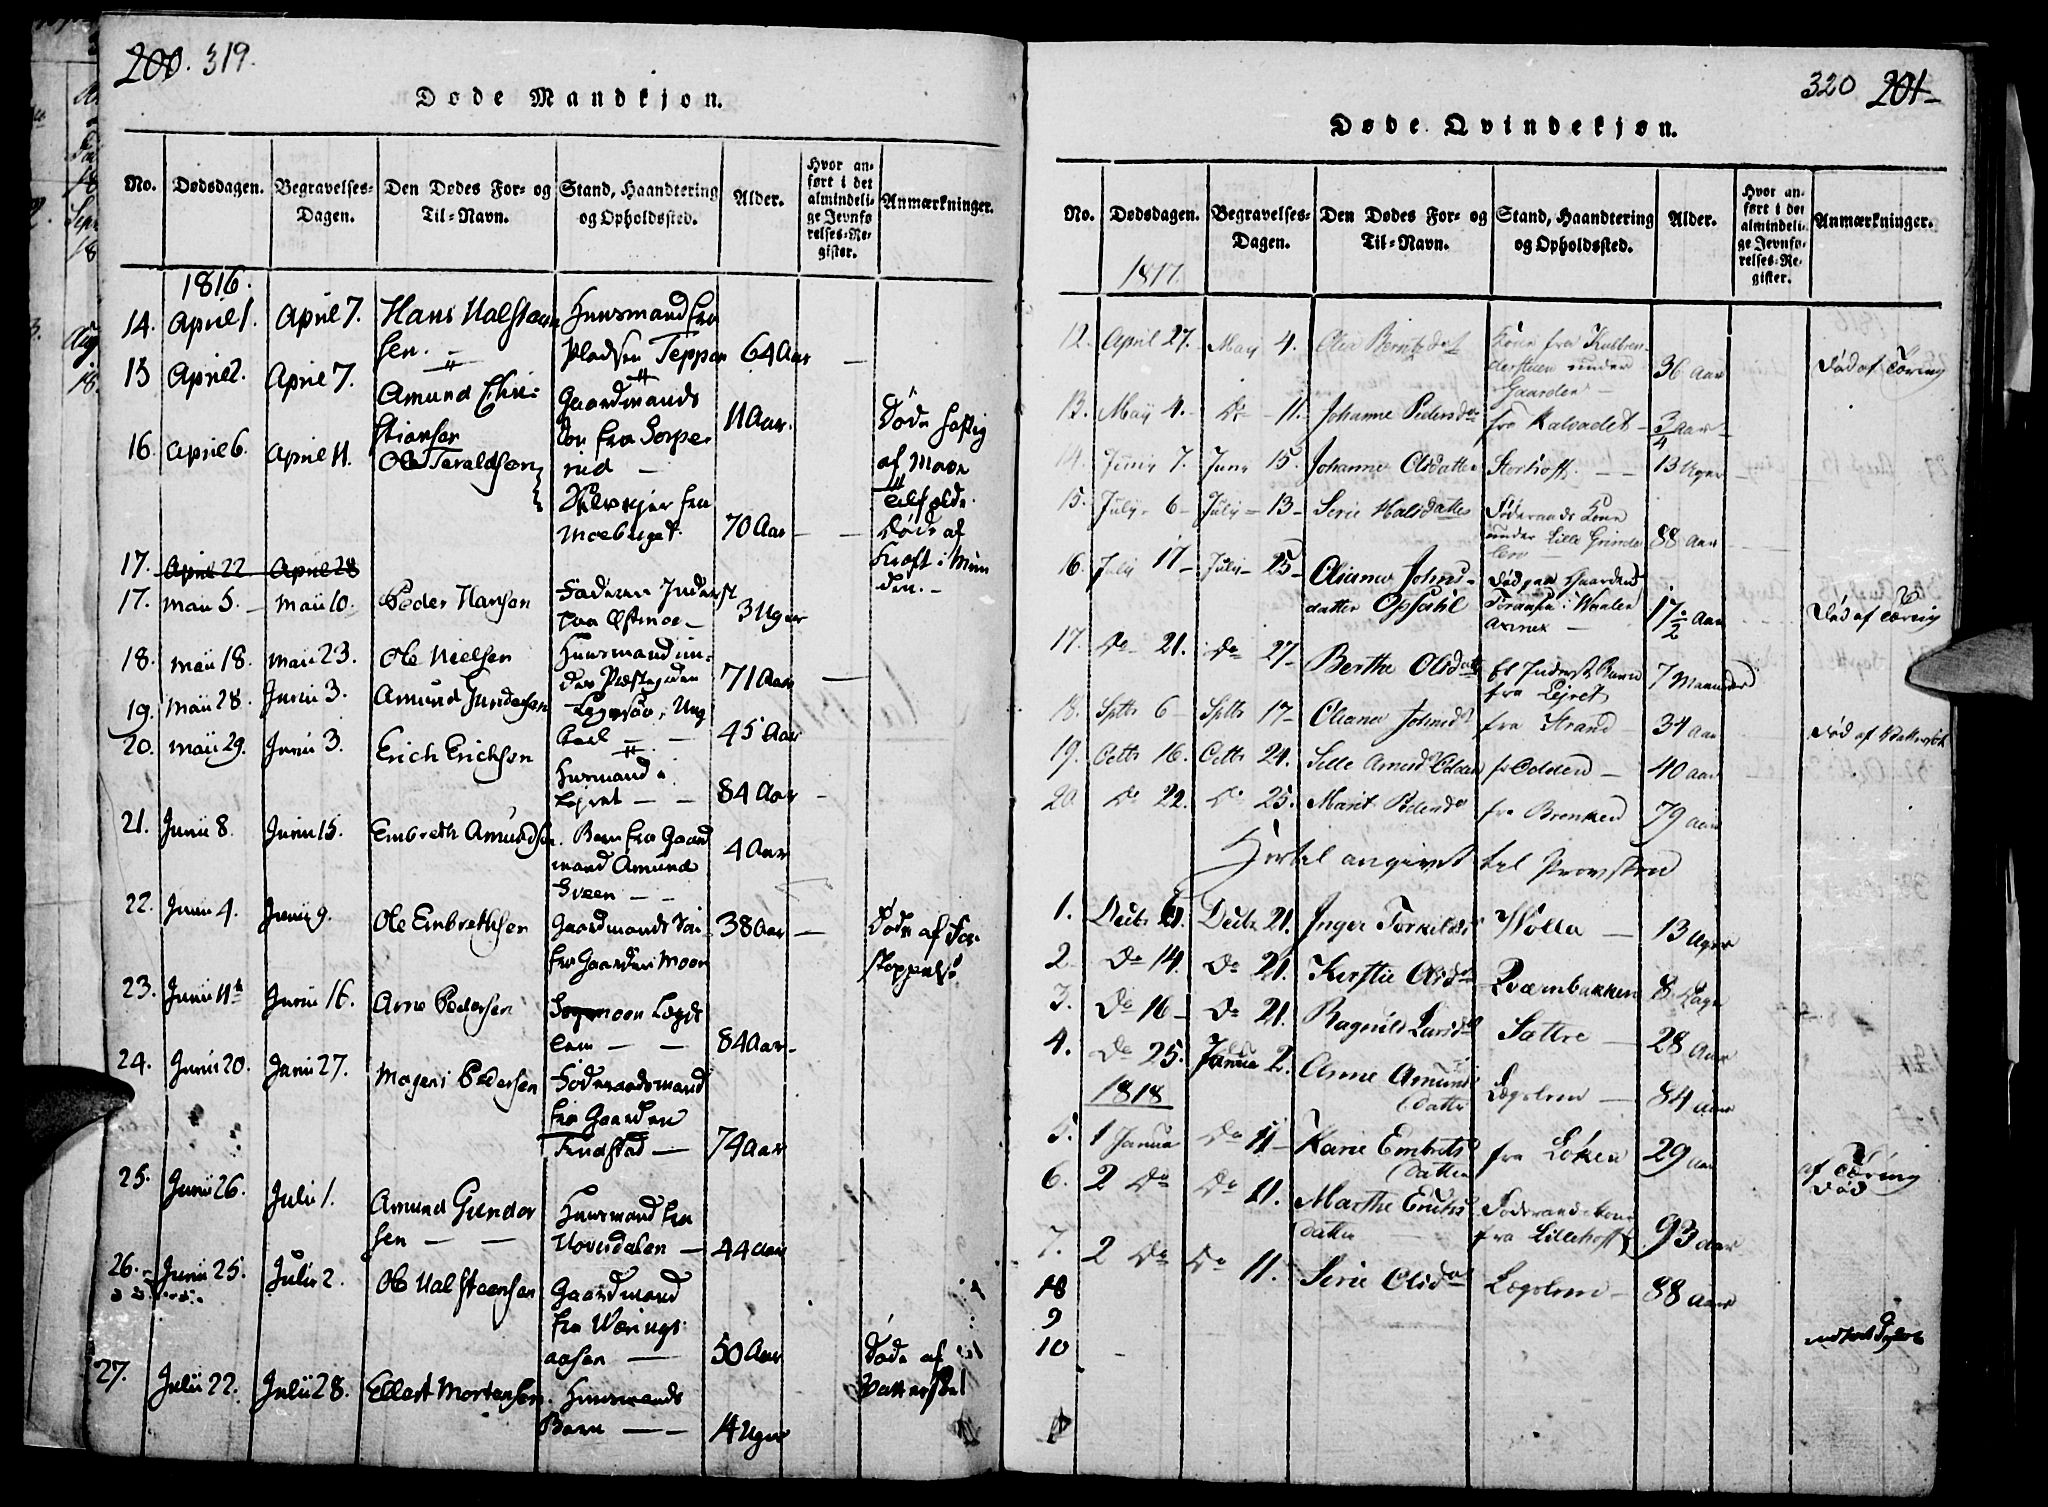 200. 319.
Døde Mandkjøn.
No. Dødsdagen. Begravelses-Dagen. Den Dødes For- og Til-Navn. Stand, Haandtering og Opholdssted. Alder. Hvor anført i det almindelige Jevnførelses-Register. Anmærkninger.
1816.
14. April 1. April 7. Hans Halsteensen. Huusmand fra Pladsen Teppen 64 Aar
15 April 2. April 7. Amund Christiansen Gaardmands Søn fra 11 Aar. Døde hastig af
16. April 6. April 11. Ole Taraldsen fra Moebuget. 70 Aar Døde af Kræft i Munden.
17. April 22 April 28
17. Maii 5. Maii 10. Peder Hansen Inderst Østmoe 3 Uger
18. Maii 18. Maii 23. Ole Nielsen Huusmand under Præstegaarden 71 Aar
19. Maii 28. Junii 3. Amund Gundersen Ungkarl 45 Aar
20. Maii 29. Junii 3. Erich Erichsen Huusmand i Lejret 84 Aar
21. Junii 8. Junii 15. Embreth Amundsen. Barn fra Gaardmand Amund Sveen 4 Aar
22. Junii 4. Junii 9. Ole Embrethsen Gaardmands Søn fra Gaarden Moen 38 Aar Døde af Forstoppelse
23. Junii 11te Junii 16. Arne Pedersen Lægdslem 84 Aar
24. Junii 20. Junii 27. Mogens Pedersen Føderaadsmand fra Gaarden Findstad 74 Aar
25. Junii 26. Julii 1. Amund Gundersen Huusmand fra Hovsdalen 44 Aar
26. Junii 25. Julii 2. Ole Halsteensen Gaardmand fra Væringsaasen 50 Aar Døde af Vattersot
27. Julii 22. Julii 28. Ellert Mortensen. Huusmands Barn 14 Uger
320 201
Døde Qvindekjøn.
No. Dødsdagen. Begravelses-Dagen. Den Dødes For- og Til-Navn. Stand, Haandtering og Opholdssted. Alder. Hvor anført i det almindelige Jevnførelses-Register. Anmærkninger.
1817.
12. April 27. May 4. Olia Berntsdat Kone fra under Gaarder 36 Aar Død af Tæring
13. May 4. Do 11. Johanne Pedersda fra Kalvadet 3/4 Aar
14. Juny 7. Juny 15. Johanna Olsdatter Storhoff. 13 Uger
15. July 6 July 13 Serie Halsdatter Føderaads Kone under Lille Grindalen 88 Aar
16. July 17 July 25 Oliana Johnsdatter Opsahl død paa Gaarden i Vaaler Annex 17 1/2 Aar Død af Tæring
17. Do 21. Do 27 Berthe Olsdatt Et Inderst Barn fra Lejret 7 Maaneder
18. Sptbr 6 Sptbr 17 Oliana Johnsd fra Strand 34 Aar Død af Vattersot
19. Octbr 16. Octbr 24. Sille Amundsd Odden fr Odden 40 Aar
20. Do 22. Do 25. Marit Pedersda fra Brenken 79 Aar
Hertil angivet til Provsten
1. Decbr 6. Decbr 21. Inger Torkildsd Wolla 13 Uger
2. Do 14. Do 21. Kerstie Olsda Qværnbakken 8 Dage
3. Do 16 Do 21. Ragnild Larsda Sættre 28 Aar
4. Do 25. Janua 2. Anne Amundsdatter Lægslem 84 Aar
1818
5. 1 Janua Do 11 Karie Embretsdatter fra Løken 29 Aar
6. 2 Do Do 11. Marthe Erichsdatter Føderaadskone fra Lillehoff 93 Aar af Tæring død
7. 2 Do Do 11. Serie Olsda Lægslem 88 Aar
18
9
10